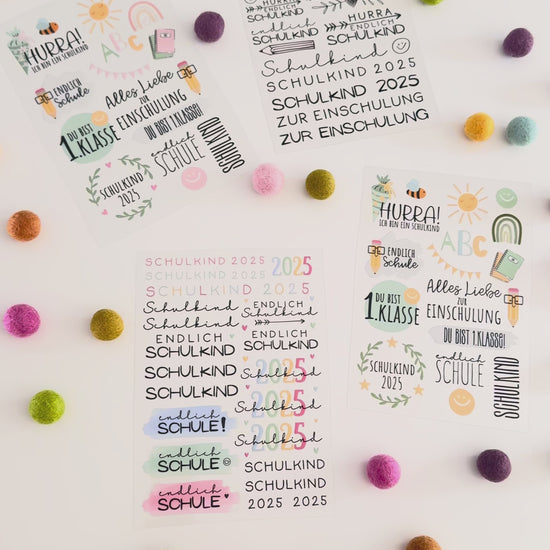 HURRA!
ICH BIN EIN SCHULKIND
ABC
ENDLICH
Schule
Alles Liebe
ZUR
EINSCHULUNG
1. DU BIST
KLASSE
DU BIST 1.KLASSE!
endlich
SCHULE
SCHULKIND
SCHULKIND
2025
HURRA
ENDLICH
SCHULKIND
ENDLICH
SCHULKIND
Schulkind
SCHULKIND 2025
SCHULKIND 2025
ZUR EINSCHULUNG
ZUR EINSCHULUNG
HURRA!
ICH BIN EIN SCHULKIND
ABC
ENDLICH
Schule
Alles Liebe
ZUR
EINSCHULUNG
1. DU BIST
KLASSE
DU BIST 1.KLASSE!
endlich
SCHULE
SCHULKIND
SCHULKIND
2025
SCHULKIND 2025
SCHULKIND 2025
2025
SCHULKIND 2025
Schulkind
ENDLICH
SCHULKIND
Schulkind
ENDLICH
SCHULKIND
ENDLICH
SCHULKIND
SCHULKIND
SCHULKIND
2025
Schulkind
2025
Schulkind
2025
Schulkind
endlich
SCHULE!
endlich
SCHULE
endlich
SCHULE
SCHULKIND
SCHULKIND
2025 2025